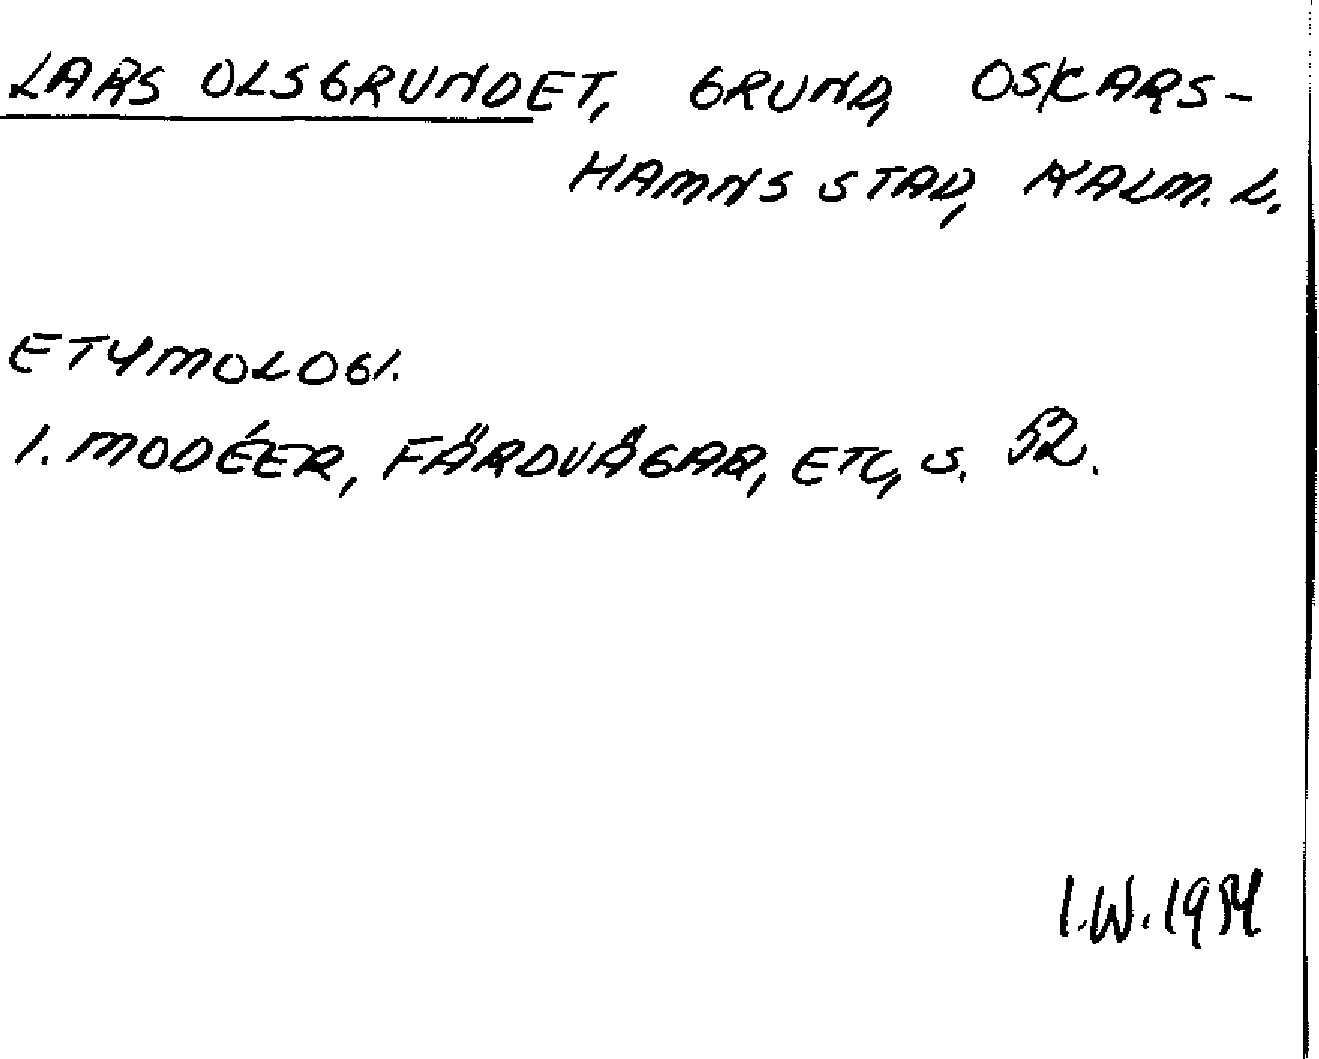 LARS OLSGRUNDET, GRUND, OSKARS-
HAMNS STAD, KALM. L.
ETYMOLOGI.
1. MODÉER, FÄRDVÄGAR, ETC, S. 52.
I.W.